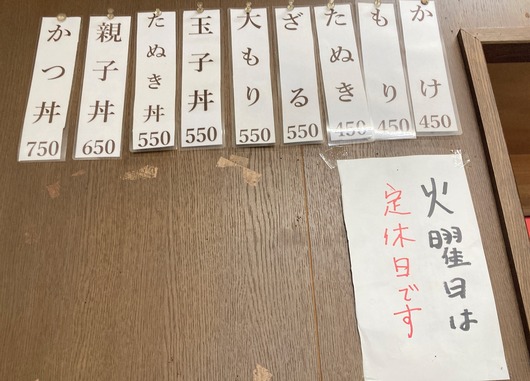 かけ 450
もり 450
たぬき 450
ざる 550
大もり 550
玉子丼 550
たぬき丼 550
親子丼 650
かつ丼 750
火曜日は
定休日です